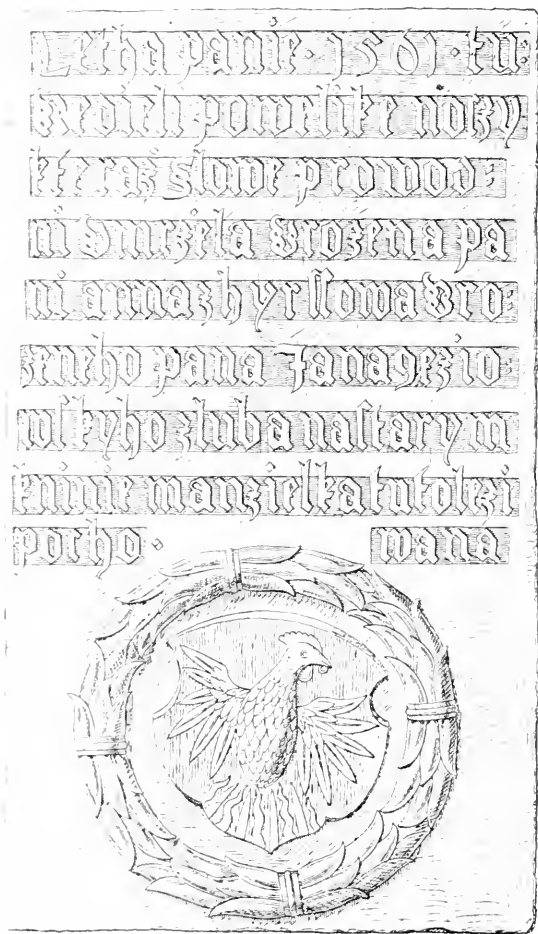 Letha panie · 1501 · tu:
zedieli powelike noczy
kteraz slowe prowod:
ni vmrziela vrozena pa
ni anna z hyrssowa vro:
zeneho pana Jana Gezio:
wskyho z luba na starym
kninie manzielka tuto lezi
pocho · wana